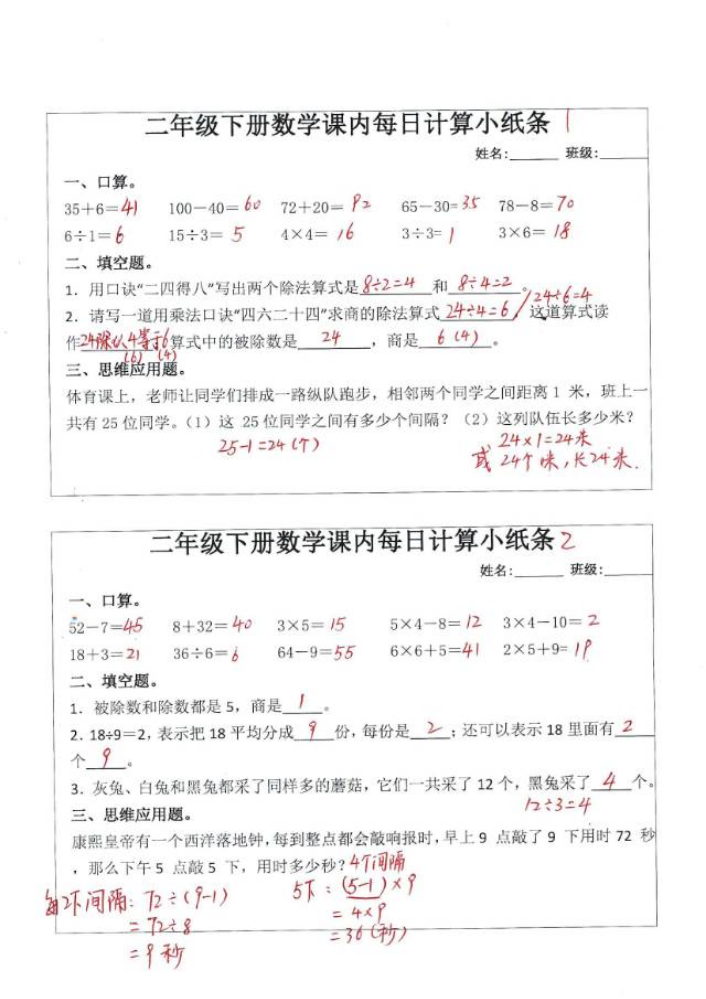 二年级下册数学课内每日计算小纸条 1
姓名:______ 班级:______
一、口算。
35+6=41 100-40=60 72+20=92 65-30=35 78-8=70
6÷1=6 15÷3=5 4×4=16 3÷3=1 3×6=18
二、填空题。
1. 用口诀“二四得八”写出两个除法算式是8÷2=4和8÷4=2。
24÷6=4
2. 请写一道用乘法口诀“四六二十四”求商的除法算式24÷4=6/这道算式读
作24除以4等于6算式中的被除数是24，商是6(4)。
(6) (4)
三、思维应用题。
体育课上，老师让同学们排成一路纵队跑步，相邻两个同学之间距离 1 米，班上一
共有 25 位同学。（1）这 25 位同学之间有多少个间隔？（2）这列队伍长多少米？
25-1=24(个) 24×1=24米
或 24个1米，长24米.
二年级下册数学课内每日计算小纸条 2
姓名:______ 班级:______
一、口算。
52-7=45 8+32=40 3×5=15 5×4-8=12 3×4-10=2
18+3=21 36÷6=6 64-9=55 6×6+5=41 2×5+9=19
二、填空题。
1. 被除数和除数都是 5，商是1。
2. 18÷9=2，表示把 18 平均分成9份，每份是2；还可以表示 18 里面有2
个9。
3. 灰兔、白兔和黑兔都采了同样多的蘑菇，它们一共采了 12 个，黑兔采了4个。
12÷3=4
三、思维应用题。
康熙皇帝有一个西洋落地钟，每到整点都会敲响报时，早上 9 点敲了 9 下用时 72 秒
，那么下午 5 点敲 5 下，用时多少秒？4个间隔
每2下间隔：72÷(9-1) 5下：(5-1)×9
=72÷8 =4×9
=9秒 =36(秒)